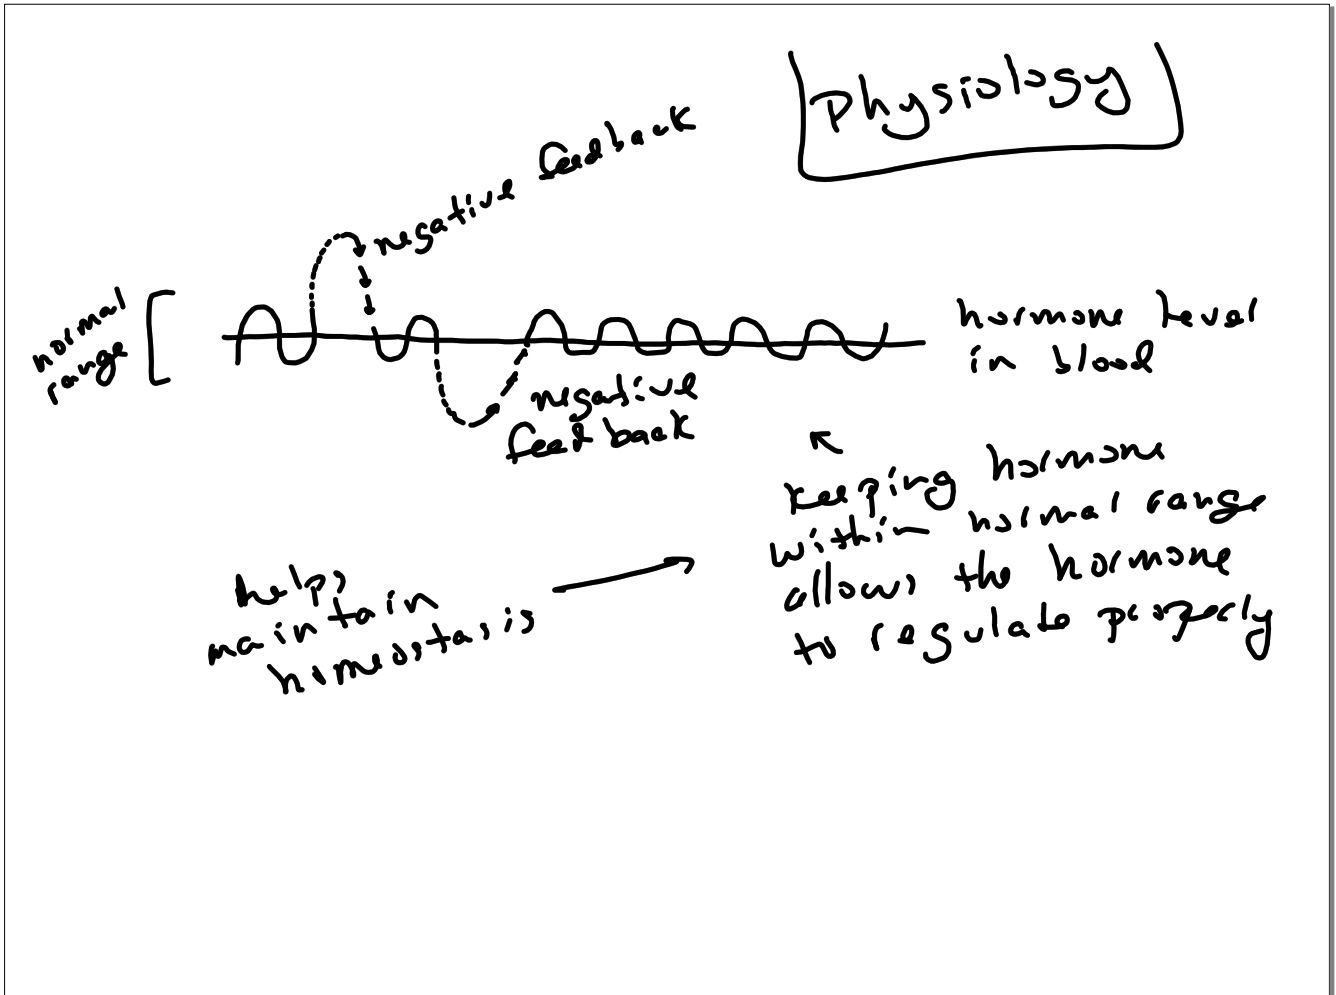 Physiology
negative feedback
normal
range
hormone level
in blood
negative
feedback
keeping hormone
within normal range
allows the hormone
to regulate properly
helps
maintain
homeostasis